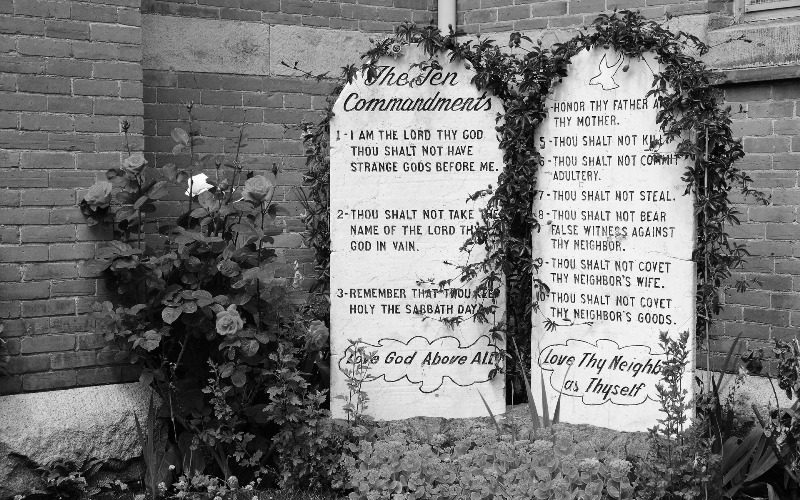 The Ten
Commandments
1 - I AM THE LORD THY GOD
THOU SHALT NOT HAVE
STRANGE GODS BEFORE ME.
2 - THOU SHALT NOT TAKE
NAME OF THE LORD THY
GOD IN VAIN.
3 - REMEMBER THAT THOU KEEP
HOLY THE SABBATH DAY.
Love God Above All
- HONOR THY FATHER
THY MOTHER.
5 - THOU SHALT NOT KILL
6 - THOU SHALT NOT COMMIT
ADULTERY.
7 - THOU SHALT NOT STEAL.
8 - THOU SHALT NOT BEAR
FALSE WITNESS AGAINST
THY NEIGHBOR.
9 - THOU SHALT NOT COVET
THY NEIGHBOR'S WIFE.
10 - THOU SHALT NOT COVET
THY NEIGHBOR'S GOODS.
Love Thy Neighb
as Thyself